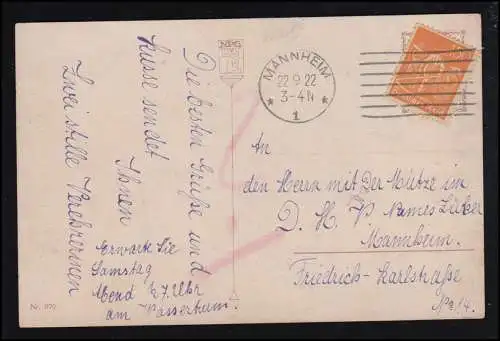 NPG
MANNHEIM
22.9.22
3-4N
* 1 *
Die besten Grüße und
Küsse sendet
Ihnen
Zwei stille Verehrerinnen
Erwarte Sie
Samstag
Abend ½7 Uhr
am Wasserturm.
An
den Herrn mit Der Mütze im
D. H. V. Names
Mannheim.
Friedrich-Karlstraße
No 14.
Nr.